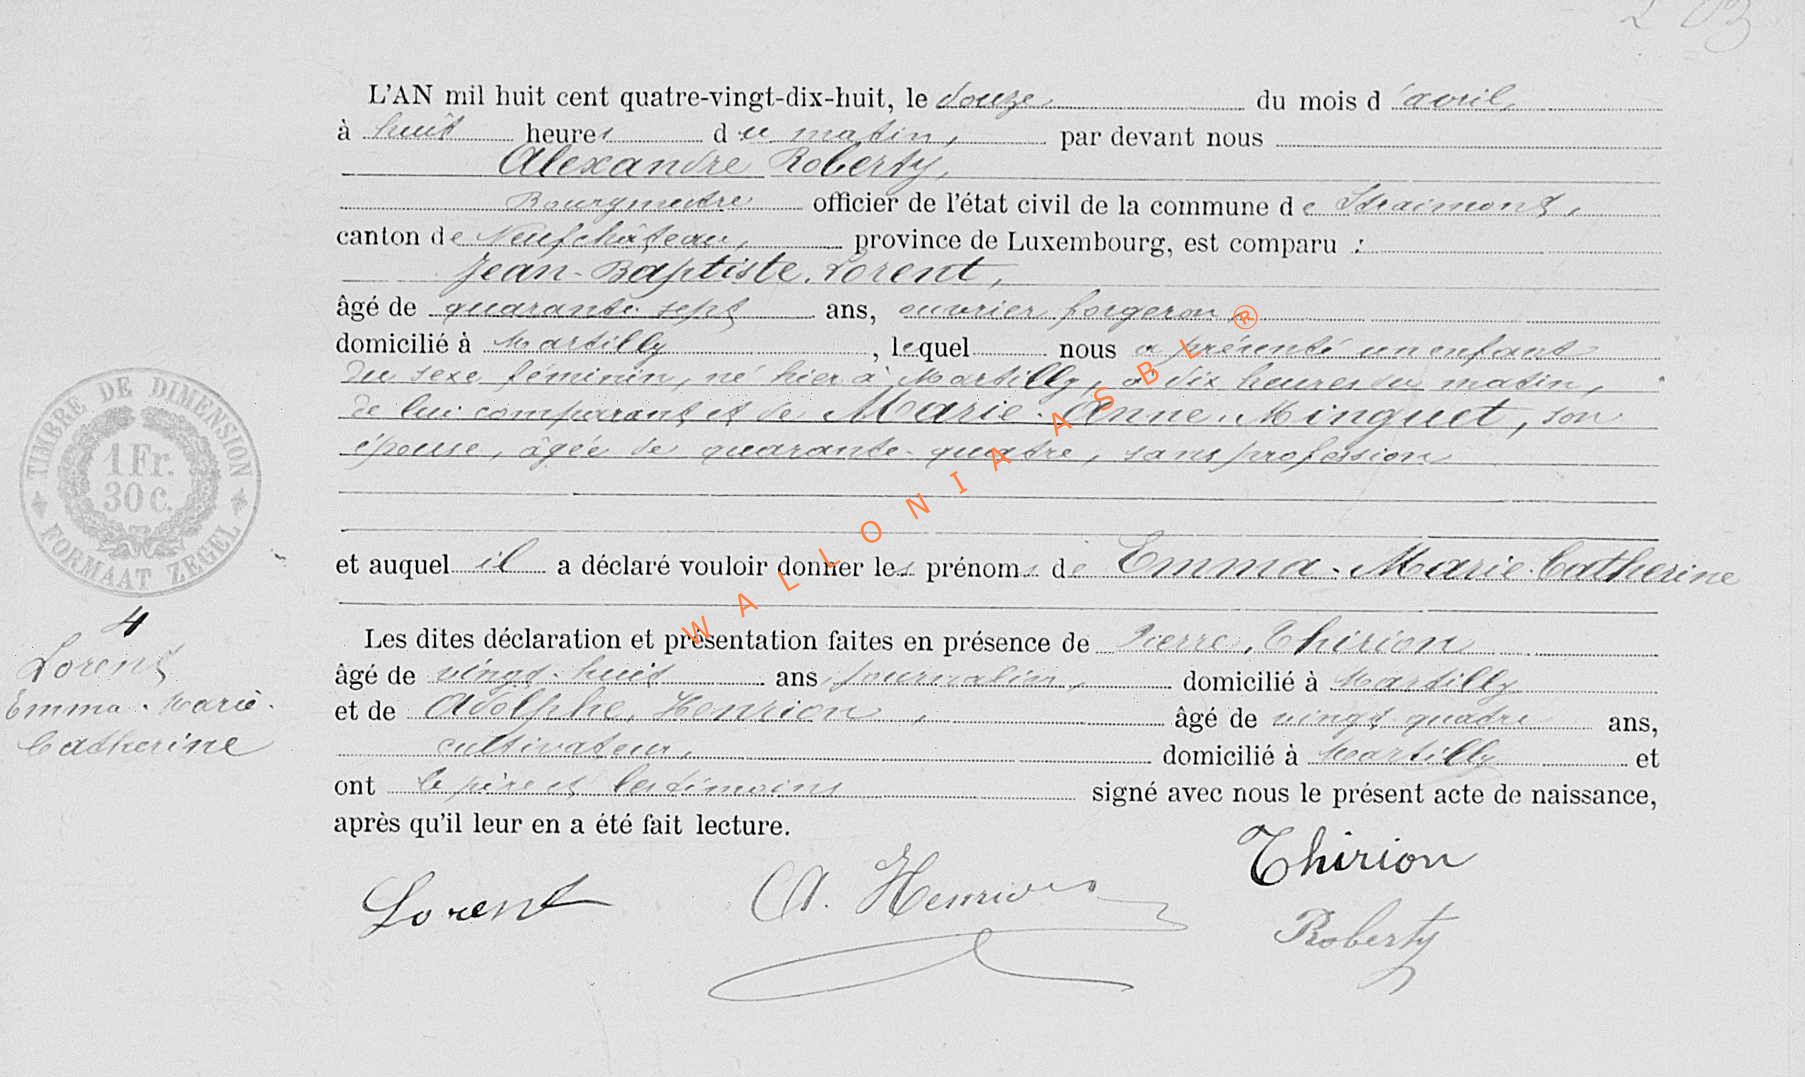 203
L'AN mil huit cent quatre-vingt-dix-huit, le douze, du mois d'avril,
à huit heures du matin, par devant nous
Alexandre Roberty,
Bourgmestre officier de l'état civil de la commune de Straimont,
canton de Neufchâteau, province de Luxembourg, est comparu :
Jean-Baptiste Lorent,
âgé de quarante-sept ans, ouvrier forgeron,
domicilié à Martilly, lequel nous a présenté un enfant
du sexe féminin, né hier à Martilly, à dix heures du matin,
de lui comparant et de Marie-Anne Minguet, son
épouse, âgée de quarante-quatre, sans profession
et auquel il a déclaré vouloir donner les prénoms de Emma-Marie-Catherine
Les dites déclaration et présentation faites en présence de Pierre Thirion
âgé de vingt-huit ans, journalier, domicilié à Martilly
et de Adolphe Henrion, âgé de vingt quatre ans,
cultivateur, domicilié à Martilly et
ont le père et les témoins signé avec nous le présent acte de naissance,
après qu'il leur en a été fait lecture.
Lorent
A. Henrion
Thirion
Roberty
TIMBRE DE DIMENSION
1 Fr.
30 c.
FORMAAT ZEGEL
4
Lorent
Emma-Marie-
Catherine
WALLONIA ASBL ®